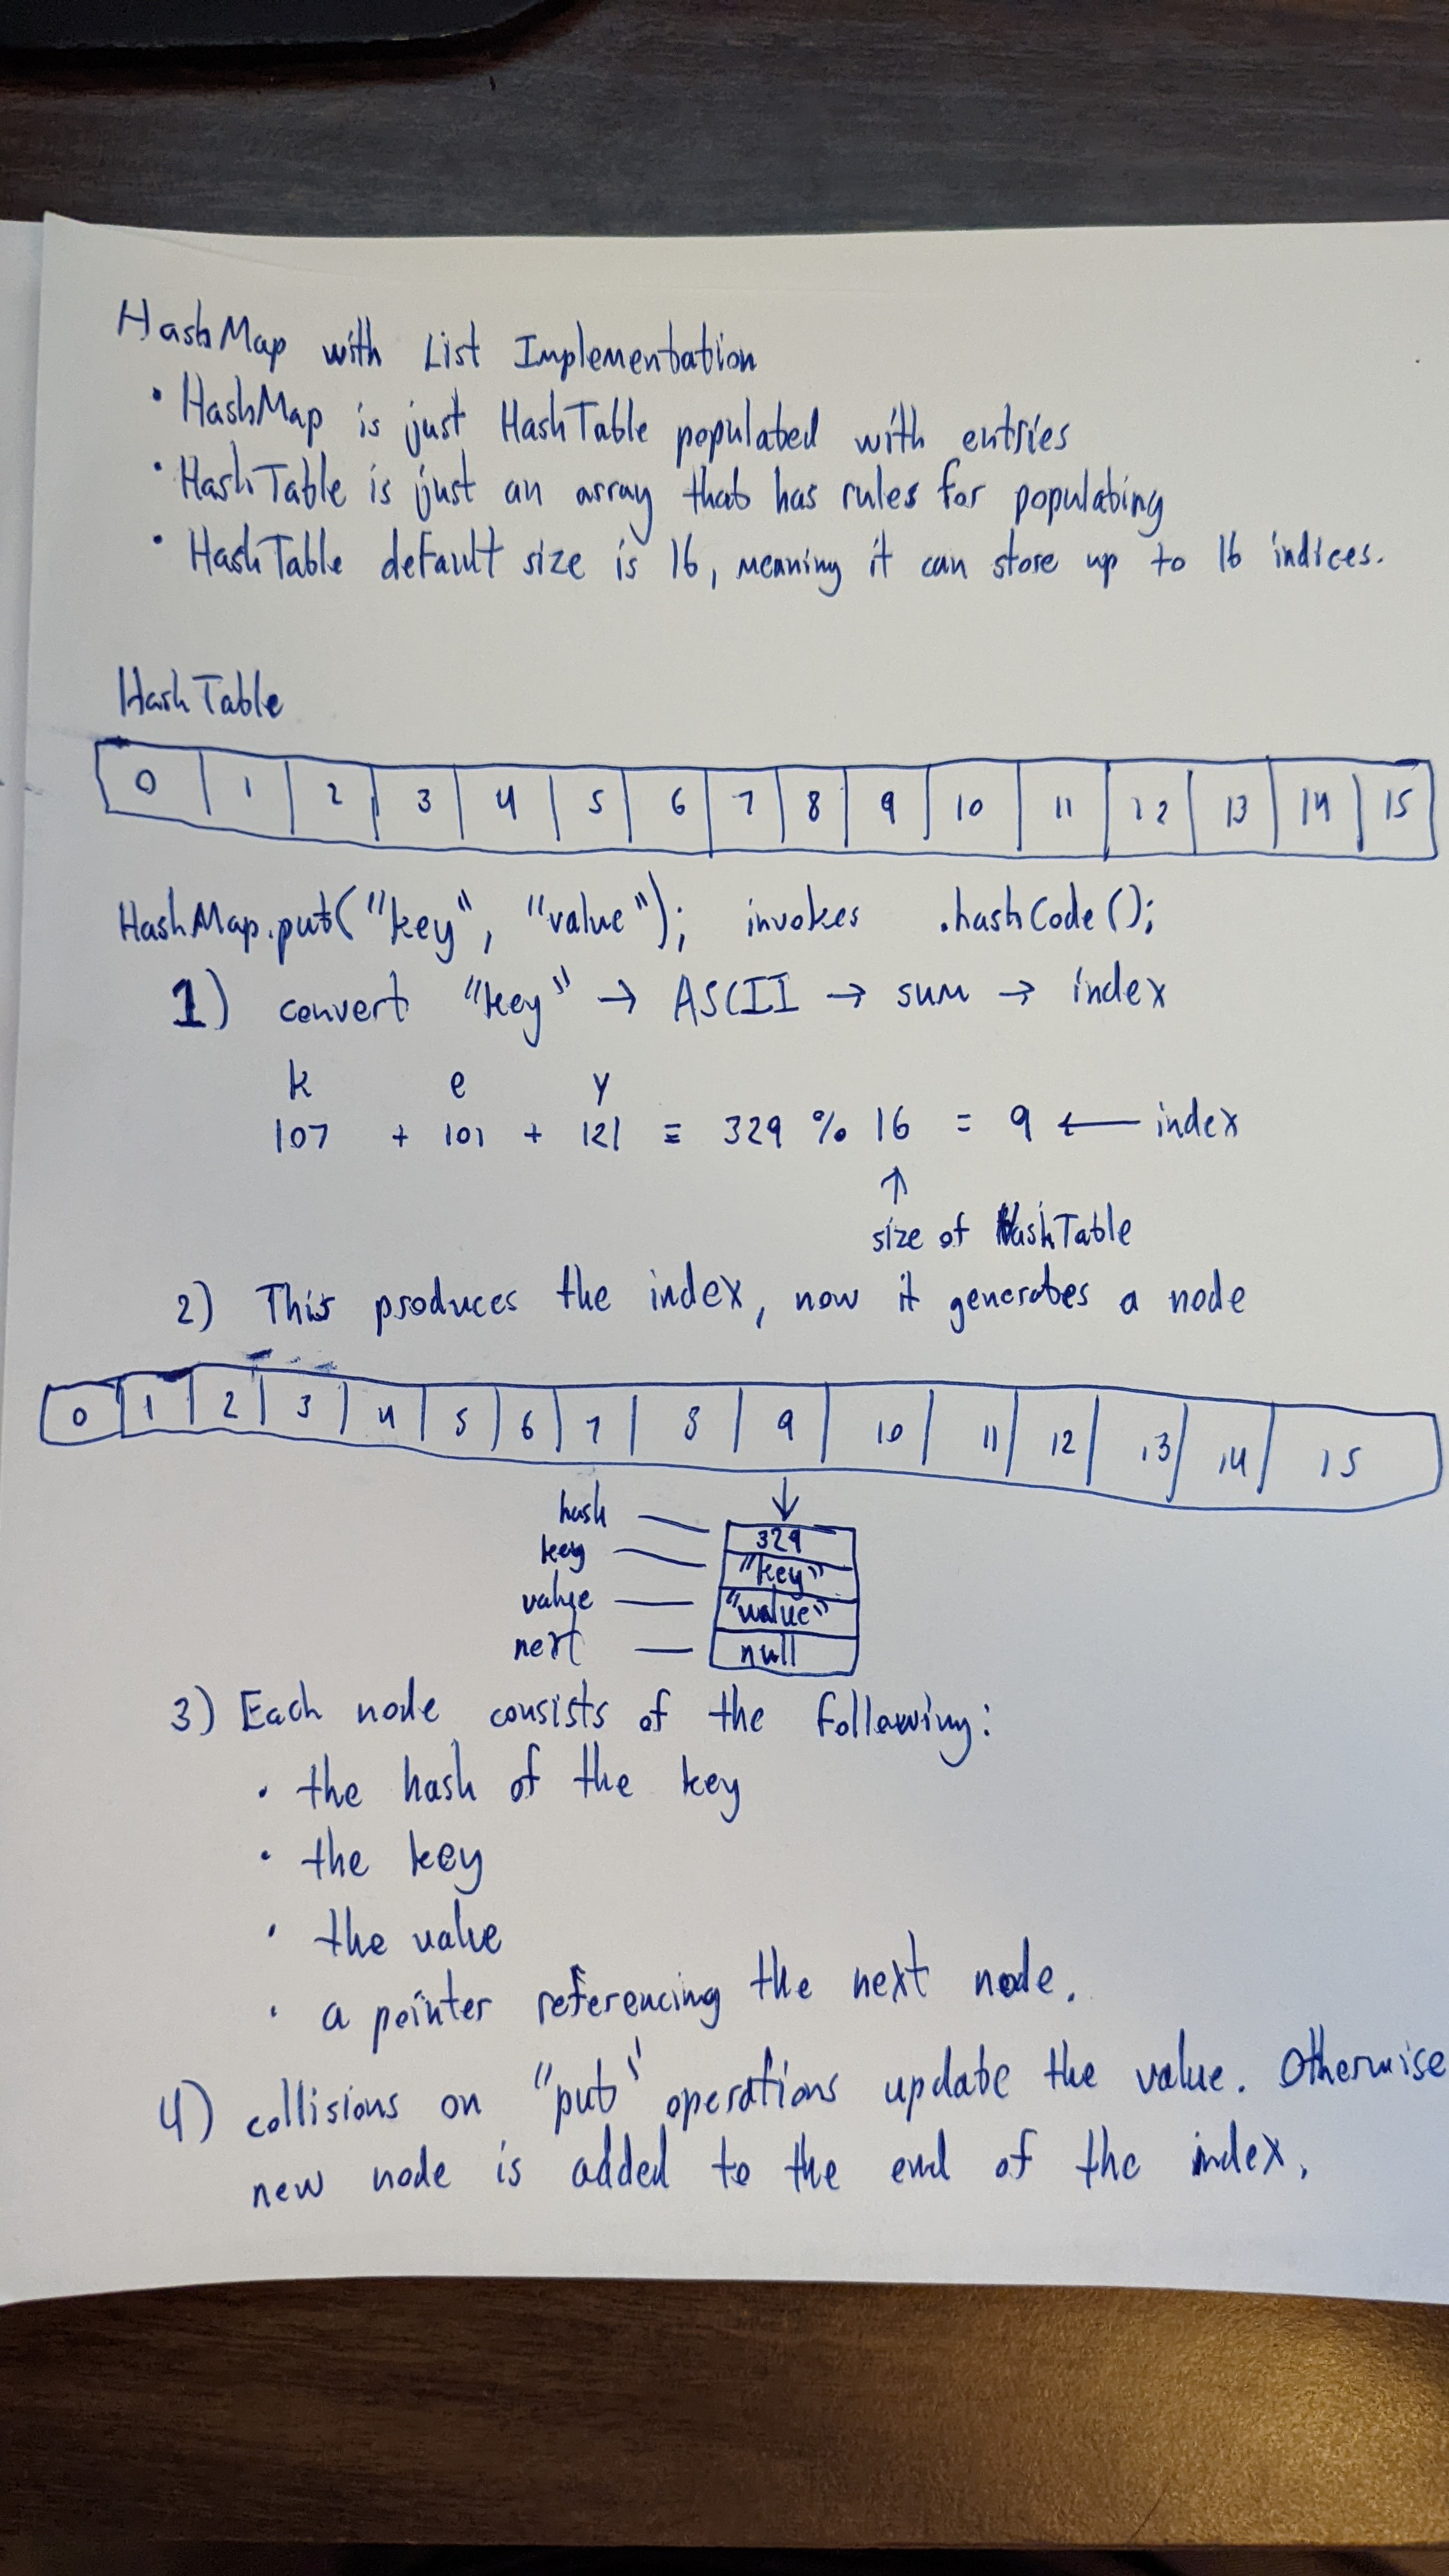 HashMap with List Implementation
• HashMap is just HashTable populated with entries
• HashTable is just an array that has rules for populating
• HashTable default size is 16, meaning it can store up to 16 indices.
HashTable
0 1 2 3 4 5 6 7 8 9 10 11 12 13 14 15
HashMap.put("key", "value"); invokes .hashCode();
1) convert "key" → ASCII → sum → index
k e y
107 + 101 + 121 = 329 % 16 = 9 ← index
↑
size of HashTable
2) This produces the index, now it generates a node
0 1 2 3 4 5 6 7 8 9 10 11 12 13 14 15
↓
hash — 329
key — "key"
value — "value"
next — null
3) Each node consists of the following:
• the hash of the key
• the key
• the value
• a pointer referencing the next node.
4) collisions on "put" operations update the value. Otherwise
new node is added to the end of the index.